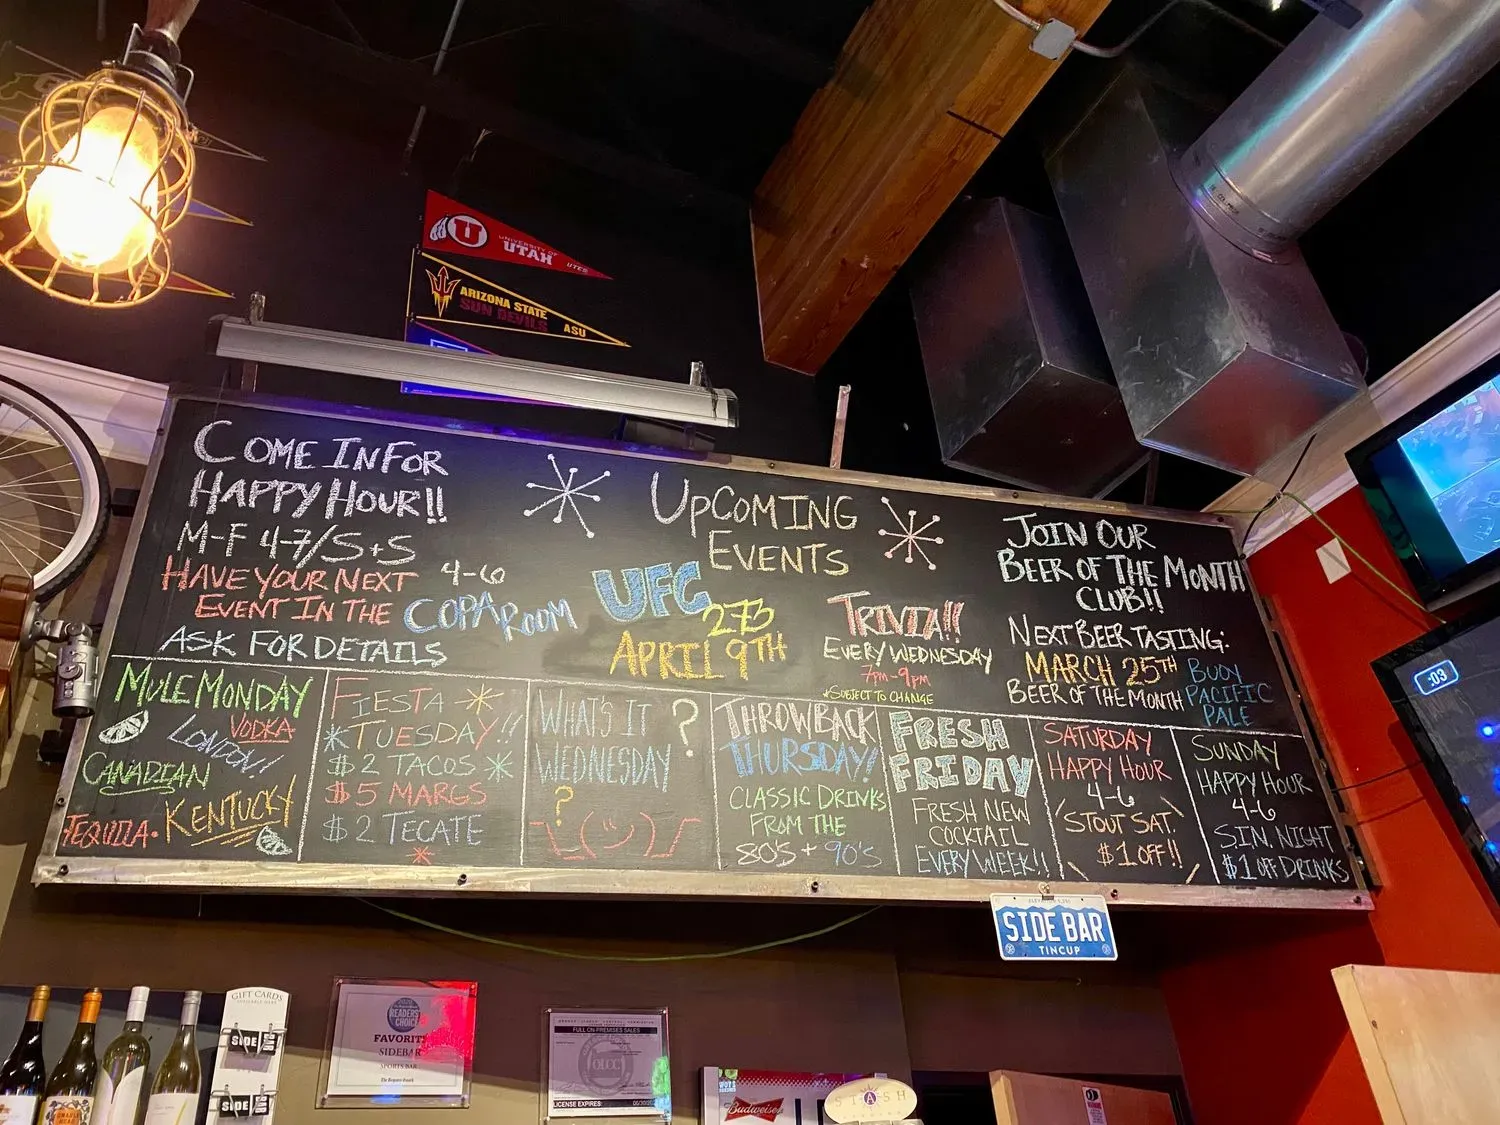 UNIVERSITY OF
UTAH
UTES
ARIZONA STATE
SUN DEVILS
ASU
COME IN FOR
HAPPY HOUR!!
M-F 4-7/S+S
4-6
HAVE YOUR NEXT
EVENT IN THE COPA ROOM
ASK FOR DETAILS
UPCOMING
EVENTS
UFC
273
APRIL 9TH
TRIVIA!!
EVERY WEDNESDAY
7PM-9PM
*SUBJECT TO CHANGE
JOIN OUR
BEER OF THE MONTH
CLUB!!
NEXT BEER TASTING:
MARCH 25TH
BEER OF THE MONTH
BUOY
PACIFIC
PALE
MULE MONDAY
VODKA
LONDON!
CANADIAN
KENTUCKY
TEQUILA
FIESTA
TUESDAY!!
$2 TACOS
$5 MARGS
$2 TECATE
WHAT'S IT
WEDNESDAY
?
?
¯\_(ツ)_/¯
THROWBACK
THURSDAY!
CLASSIC DRINKS
FROM THE
80'S + 90'S
FRESH
FRIDAY
FRESH NEW
COCKTAIL
EVERY WEEK!!
SATURDAY
HAPPY HOUR
4-6
STOUT SAT.
$1 OFF!!
SUNDAY
HAPPY HOUR
4-6
S.I.N. NIGHT
$1 OFF DRINKS
SIDE BAR
TINCUP
:03
GIFT CARDS
AVAILABLE HERE
SIDE
SIDE
READERS
CHOICE
FAVORITE
SIDEBAR
SPORTS BAR
FULL ON-PREMISES SALES
OLCC
LICENSE EXPIRES:
Budweiser
STASH